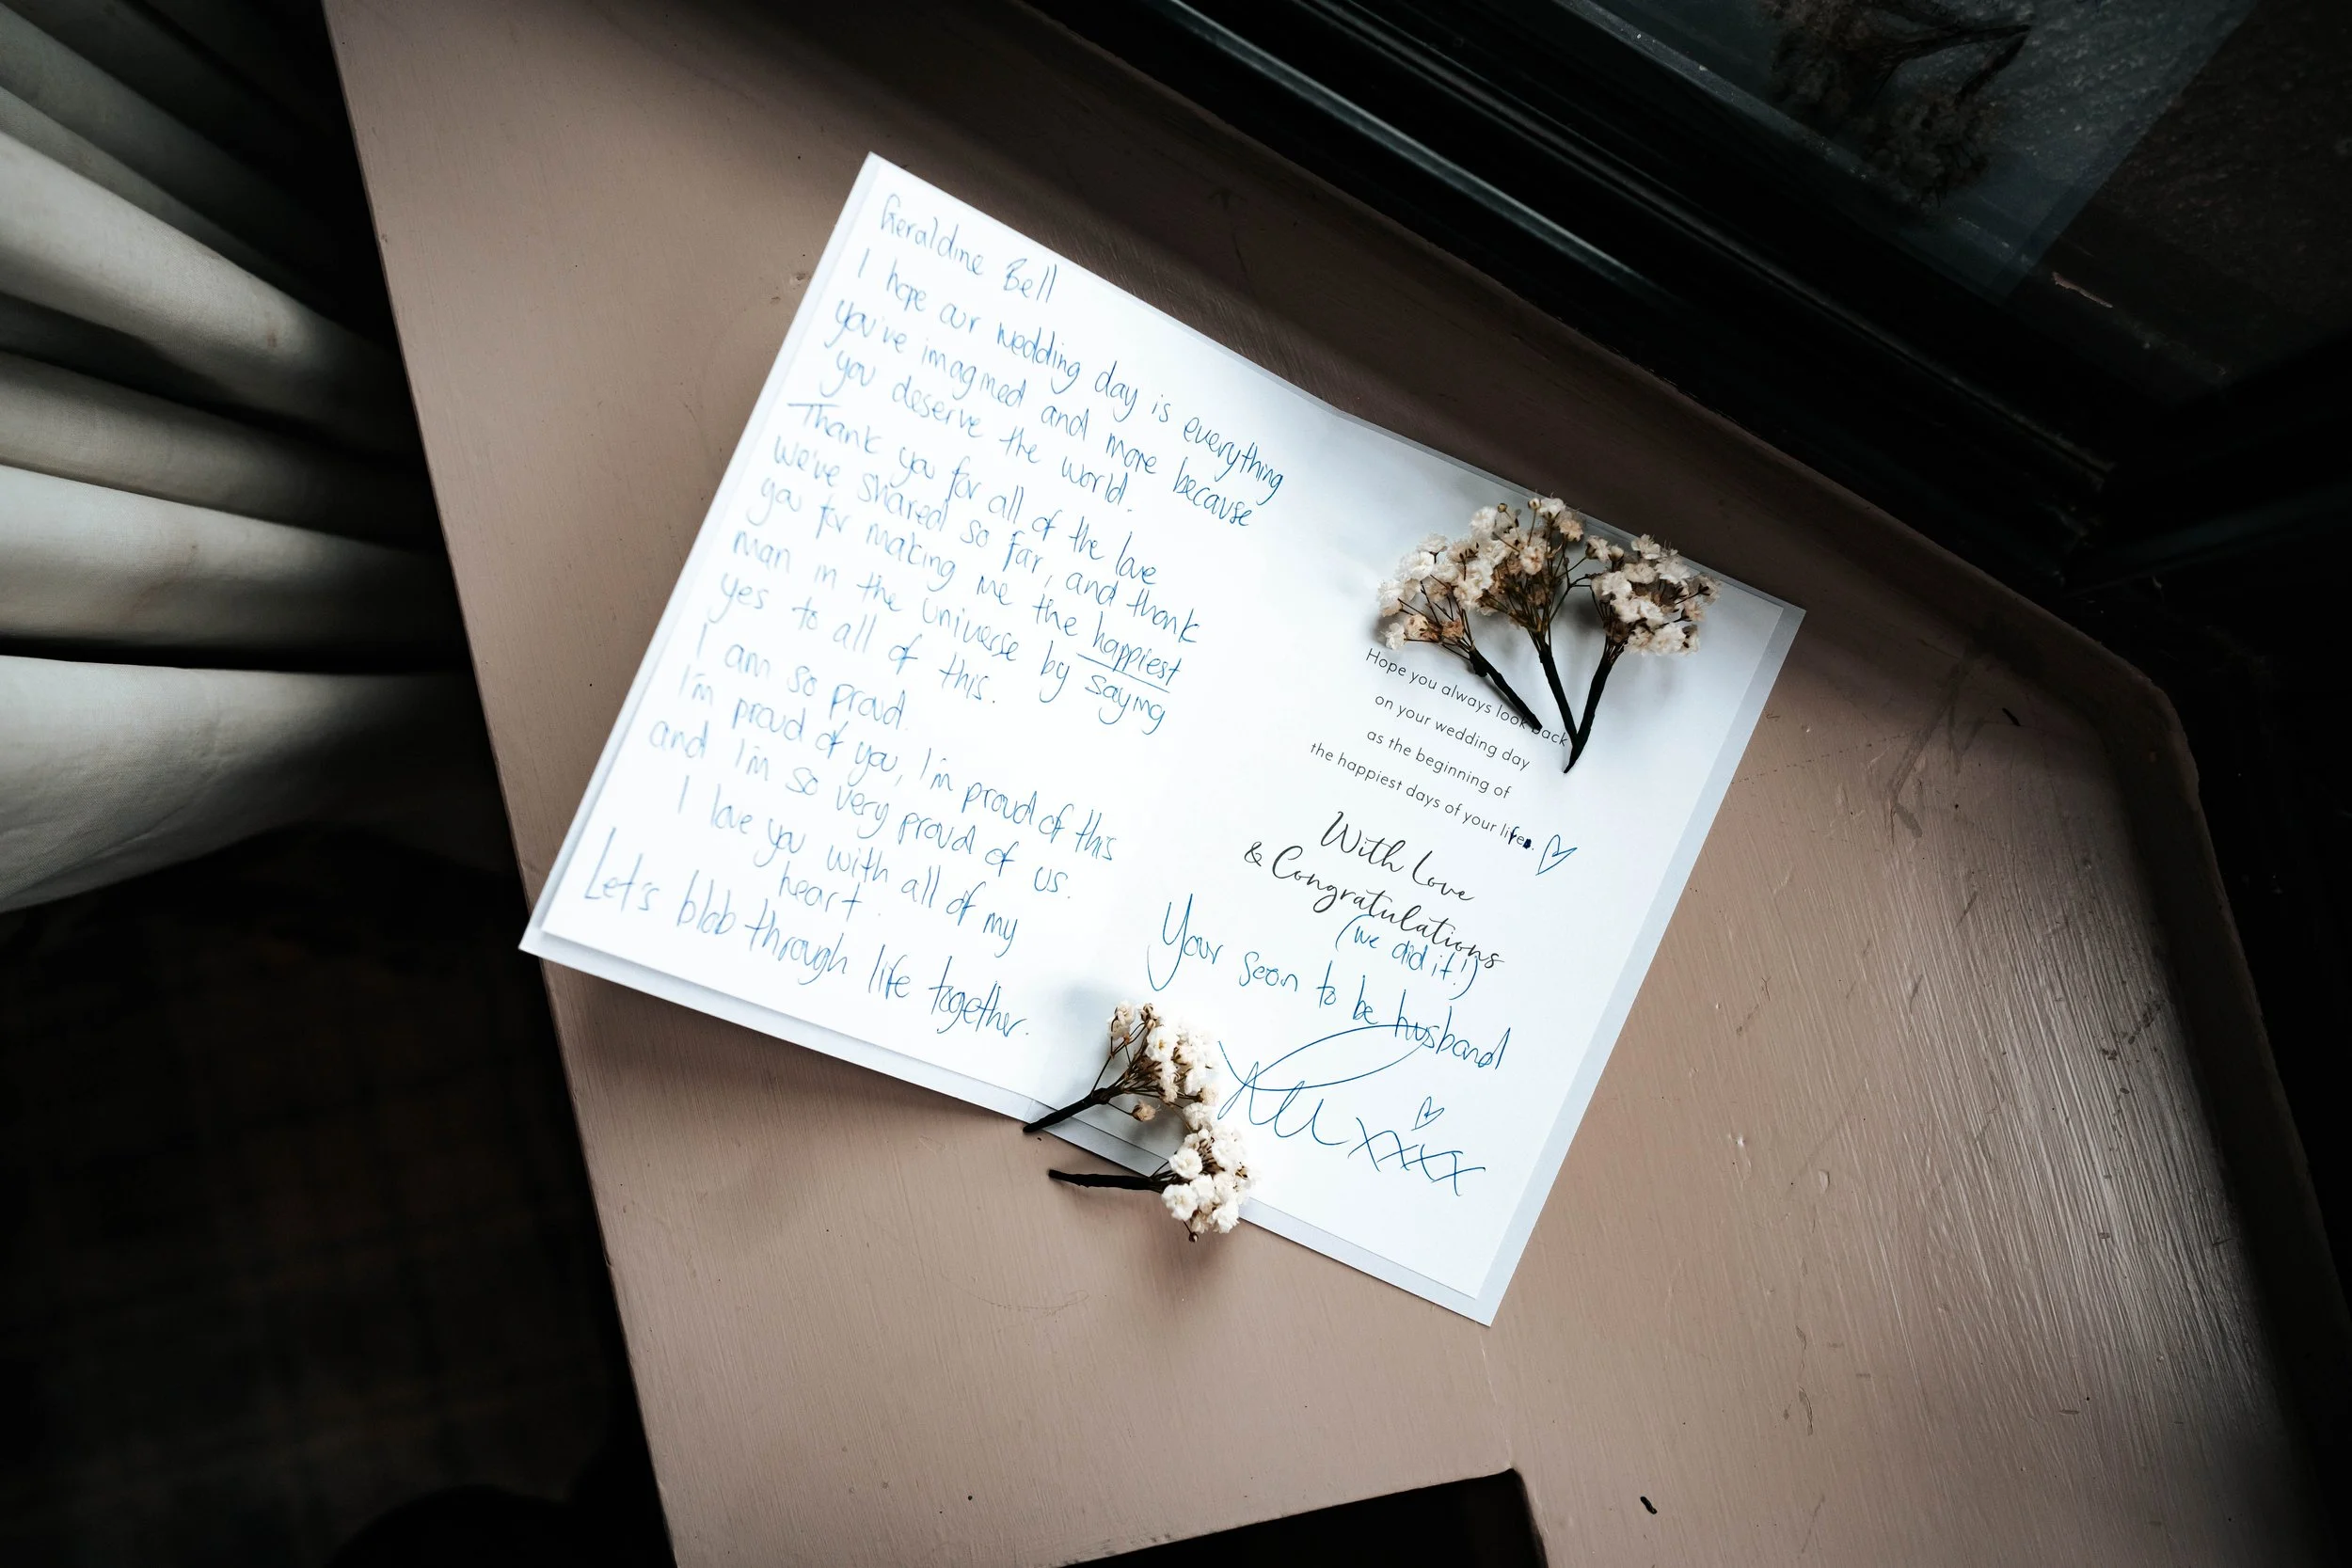 Geraldine Bell
I hope our wedding day is everything
you've imagined and more because
you deserve the world.
Thank you for all of the love
we've shared so far, and thank
you for making me the happiest
man in the universe by saying
yes to all of this.
I am so proud.
I'm proud of you, I'm proud of this
and I'm so very proud of us.
I love you with all of my
heart.
Let's blob through life together.
Hope you always look back
on your wedding day
as the beginning of
the happiest days of your lifes.
With Love
& Congratulations
(we did it!)
Your soon to be husband
xxxx